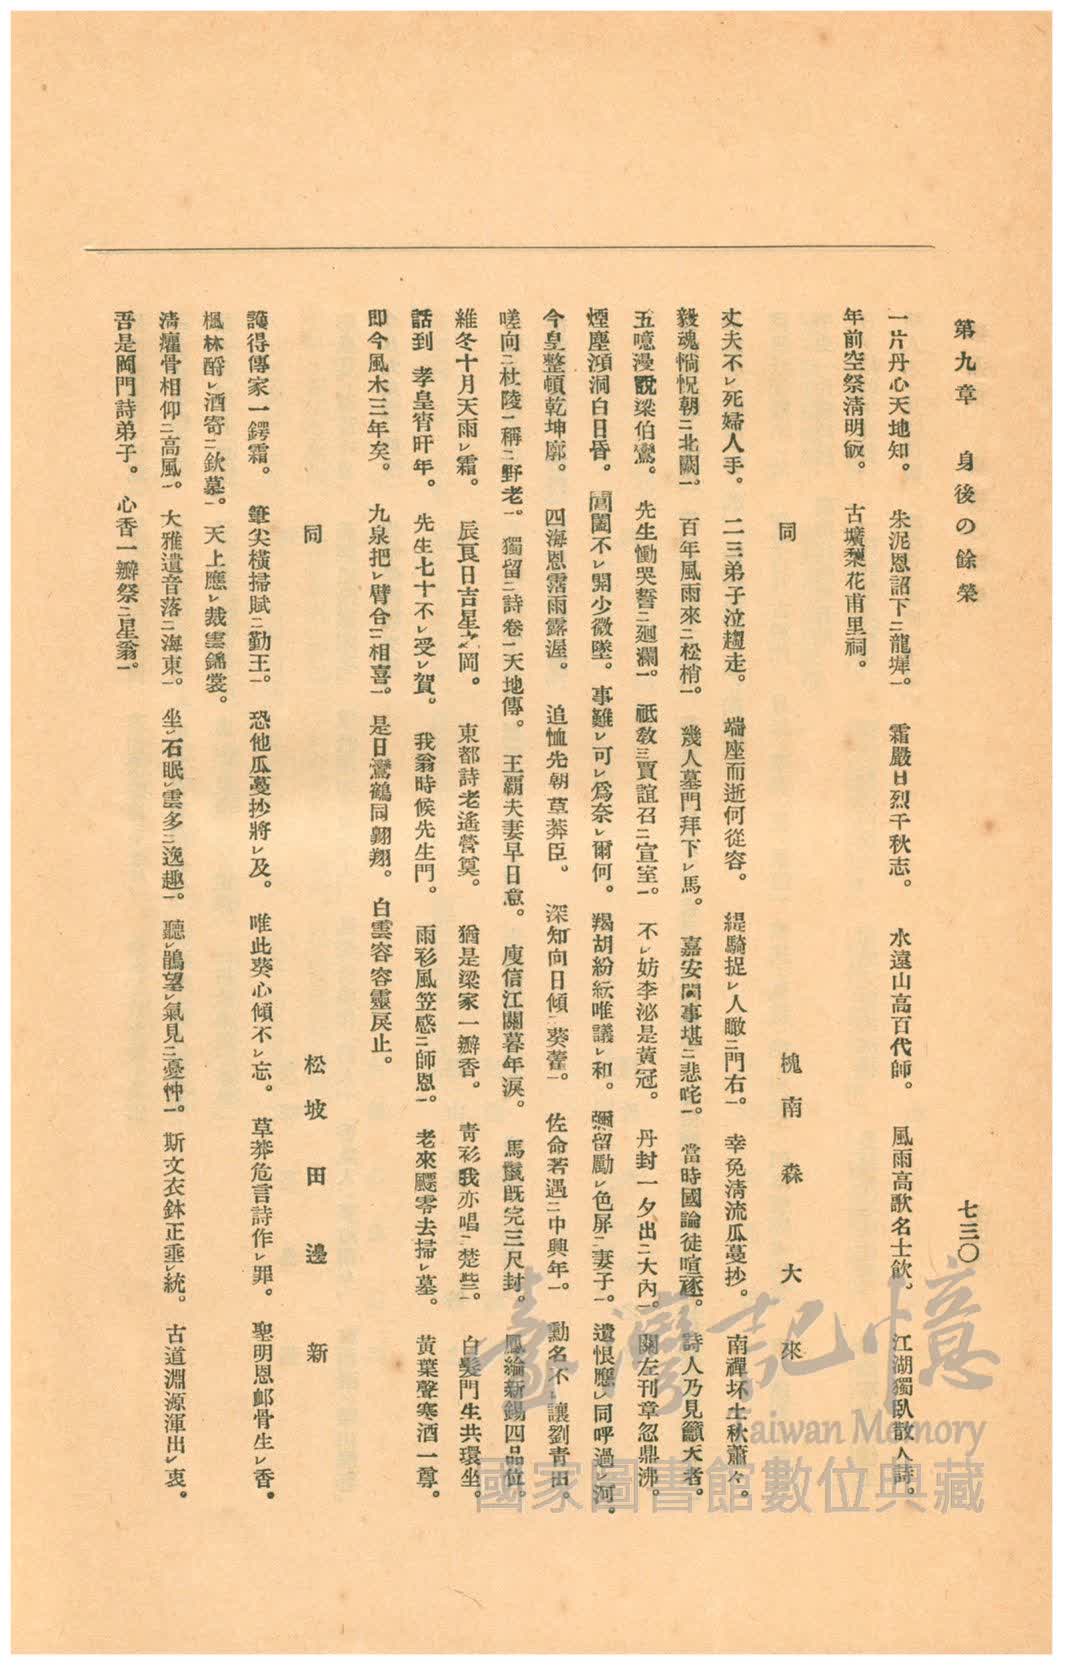 第九章　身後の餘榮　七三〇
一片丹心天地知。　朱泥恩詔下ニ龍墀一。　霜嚴日烈千秋志。　水遠山高百代師。　風雨高歌名士飮。　江湖獨臥散人詩。
年前空祭淸明飯。　古壙梨花甫里祠。
同　槐南　森大來
丈夫不レ死婦人手。　二三弟子泣趨走。　端座而逝何從容。　緹騎捉レ人瞰ニ門右一。　幸免淸流瓜蔓抄。　南禪坏土秋蕭々。
毅魂惝怳朝ニ北闕一。　百年風雨來ニ松梢一。　幾人墓門拜下レ馬。　嘉安閑事堪ニ悲咤一。　當時國論徒喧豗。　詩人乃見籲天者。
五噫漫說梁伯鸞。　先生慟哭誓ニ廻瀾一。　祗敎三賈誼召ニ宣室一。　不レ妨李泌是黃冠。　丹封一夕出ニ大內一。　關左刊章忽鼎沸。
煙塵澒洞白日昏。　閶闔不レ開少微墜。　事難レ可レ爲奈レ爾何。　羯胡紛紜唯議レ和。　彌留勵レ色屛ニ妻子一。　遺恨應レ同呼過レ河。
今皇整頓乾坤廓。　四海恩霑雨露渥。　追恤先朝草莽臣。　深知向日傾ニ葵藿一。　佐命若遇ニ中興年一。　勳名不レ讓劉靑田。
嗟向ニ杜陵一稱ニ野老一。　獨留ニ詩卷一天地傳。　王霸夫妻早日意。　庾信江關暮年淚。　馬鬣旣完三尺封。　鳳綸新錫四品位。
維冬十月天雨レ霜。　辰良日吉星之岡。　東都詩老遙營奠。　猶是梁家一瓣香。　靑衫我亦唱ニ楚些一。　白髮門生共環坐。
話到　孝皇宵旰年。　先生七十不レ受レ賀。　我翁時候先生門。　雨衫風笠感ニ師恩一。　老來飄零去掃レ墓。　黃葉聲寒酒一尊。
卽今風木三年矣。　九泉把レ臂合ニ相喜一。　是日鸞鶴同翺翔。　白雲容容靈戾止。
同　松坡　田邊　新
護得傳家一鍔霜。　筆尖橫掃賦ニ勤王一。　恐他瓜蔓抄將レ及。　唯此葵心傾不レ忘。　草莽危言詩作レ罪。　聖明恩卹骨生レ香。
楓林酹レ酒寄ニ欽慕一。　天上應レ裁雲錦裳。
淸癯骨相仰ニ高風一。　大雅遺音落ニ海東一。　坐レ石眠レ雲多ニ逸趣一。　聽レ鵑望レ氣見ニ憂忡一。　斯文衣鉢正垂レ統。　古道淵源渾出レ衷。
吾是閫門詩弟子。　心香一瓣祭ニ星翁一。
臺灣記憶
Taiwan Memory
國家圖書館數位典藏